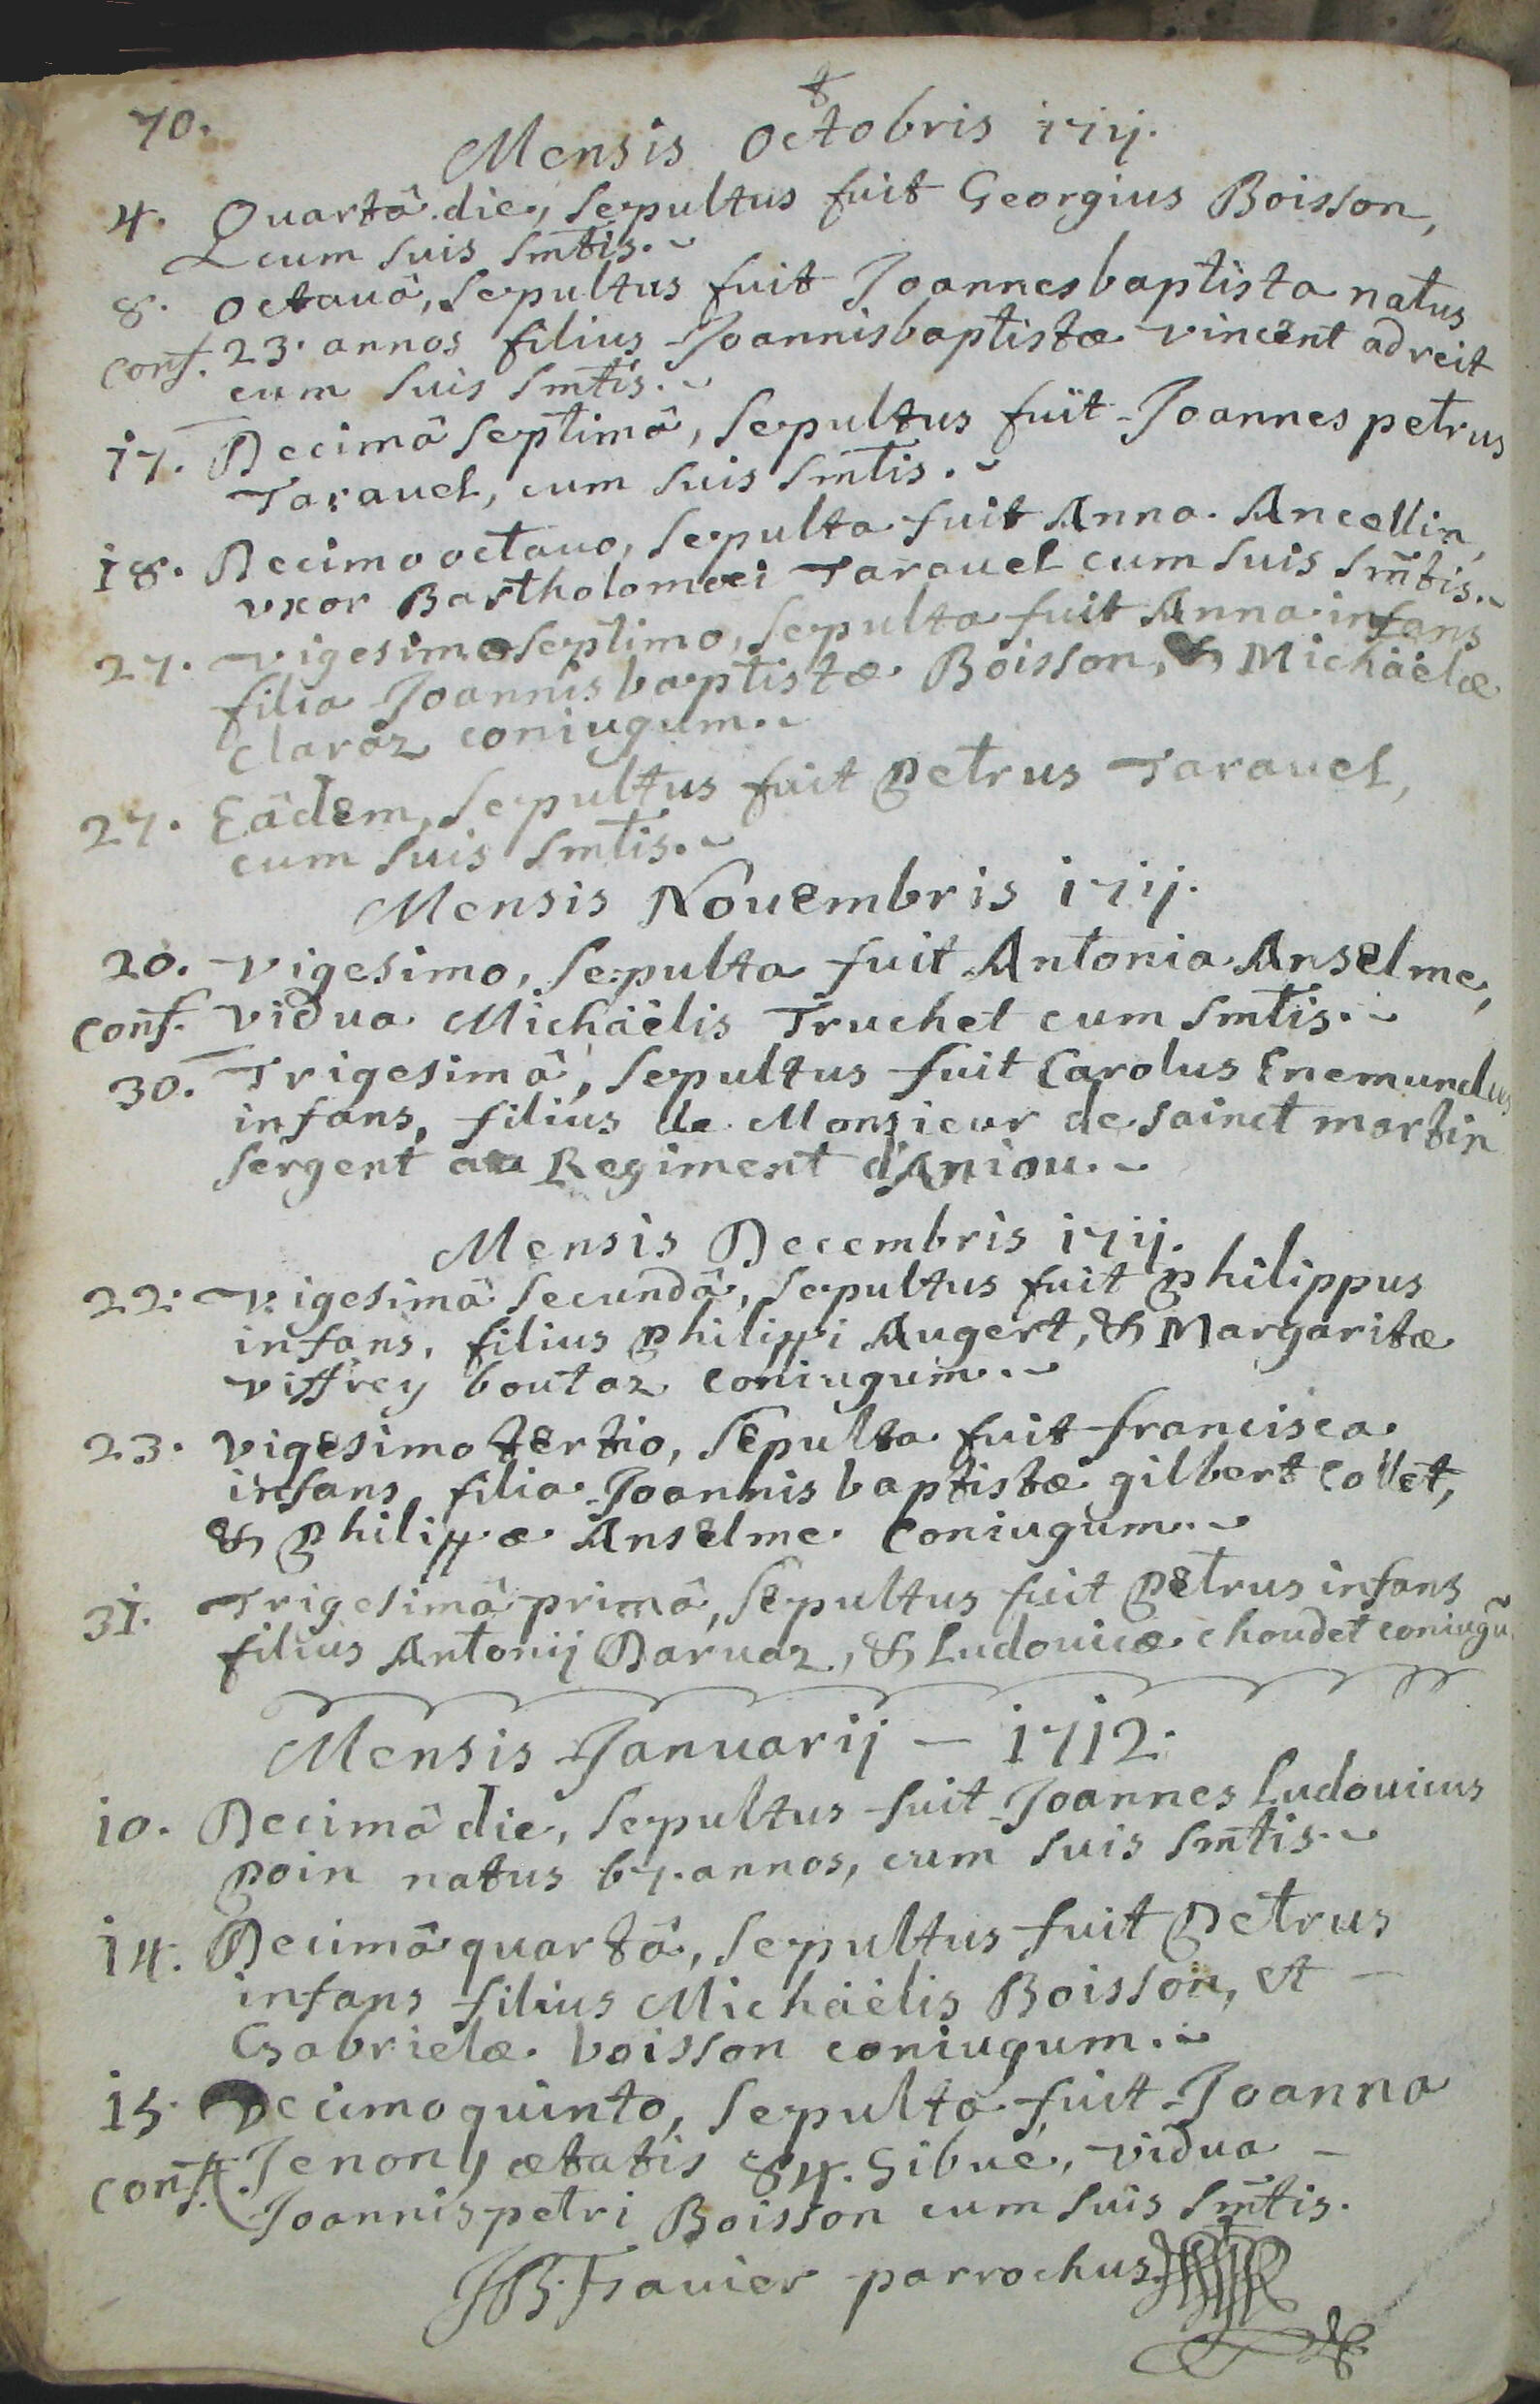 70.
Mensis octobris 1711.
4. Quartâ die, sepultus fuit Georgius Boisson,
cum suis smtis.
8. octauâ, sepultus fuit Joannesbaptista natus
conf. 23. annos filius Joannisbaptistæ vincent adreit
cum suis smtis.
17. Decimâ septimâ, sepultus fuit Joannes petrus
Tarauel, cum suis smtis.
18. Decimo octauo, sepulta fuit Anna Ancellin,
vxor Bartholomœi Tarauel cum suis smtis.
27. vigesimoseptimo, sepulta fuit Anna infans
filia Joannisbaptistæ Boisson, & Michäelæ
claraz coniugum.
27. Eâdem, sepultus fuit Petrus Tarauel,
cum suis smtis.
Mensis Nouembris 1711.
20. vigesimo, sepulta fuit Antonia Anselme,
conf. vidua Michäelis Truchet cum smtis.
30. Trigesimâ, sepultus fuit Carolus Enemundus
infans, filius de Monsieur de sainct martin
sergent au Regiment d'Aniou.
Mensis Decembris 1711.
22. vigesimâ secundâ, sepultus fuit Philippus
infans, filius Philippi Augert, & Margaritæ
viffrey boutaz coniugum.
23. vigesimo tertio, sepulta fuit francisca
infans, filia Joannis baptistæ gilbert Collet,
& Philippæ Anselme coniugum.
31. Trigesimâ primâ, sepultus fuit Petrus infans
filius Antonij Daruaz, & Ludouicæ choudet coniugũ.
Mensis Januarij — 1712.
10. Decimâ die, sepultus fuit Joannes Ludouicus
Poin natus 67. annos, cum suis smtis.
14. Decimâ quartâ, sepultus fuit Petrus
infans filius Michäelis Boisson, et —
Gabrielæ boisson coniugum.
15. Decimo quinto, sepulta fuit Joanna
conf. Jenon, ætatis 84. Gibué, vidua —
Joannispetri Boisson cum suis smtis.
JB. Frauier parrochus